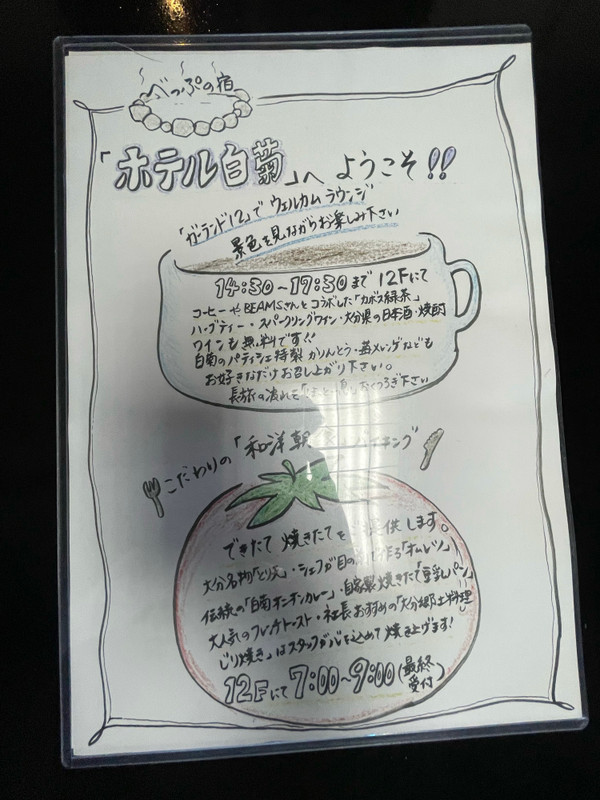 べっぷの宿
「ホテル白菊」へ ようこそ!!
「ガーランド12」で ウェルカム ラウンジ
景色を見ながらお楽しみ下さい
14:30~17:30まで 12Fにて
コーヒーやBEAMSさんとコラボした「カボス緑茶」
ハーブティー・スパークリングワイン・大分県の日本酒・焼酎
ワインも無料です!!
白菊のパティシェ特製 かりんとう・苺メレンゲなども
お好きなだけお召し上がり下さい。
長旅の疲れを「ほっと一息」おくつろぎ下さい
こだわりの「和洋朝食バイキング
できたて 焼きたてを 提供します。
大分名物「とり天」・シェフが目の前で作る「オムレツ」
伝統の「白菊チキンカレー」・自家製焼きたて「豆乳パン」
大人気のフレンチトースト・社長おすすめの「大分郷土料理
じり焼き」はスタッフが心を込めて焼き上げます!
12Fにて 7:00~9:00(最終受付)